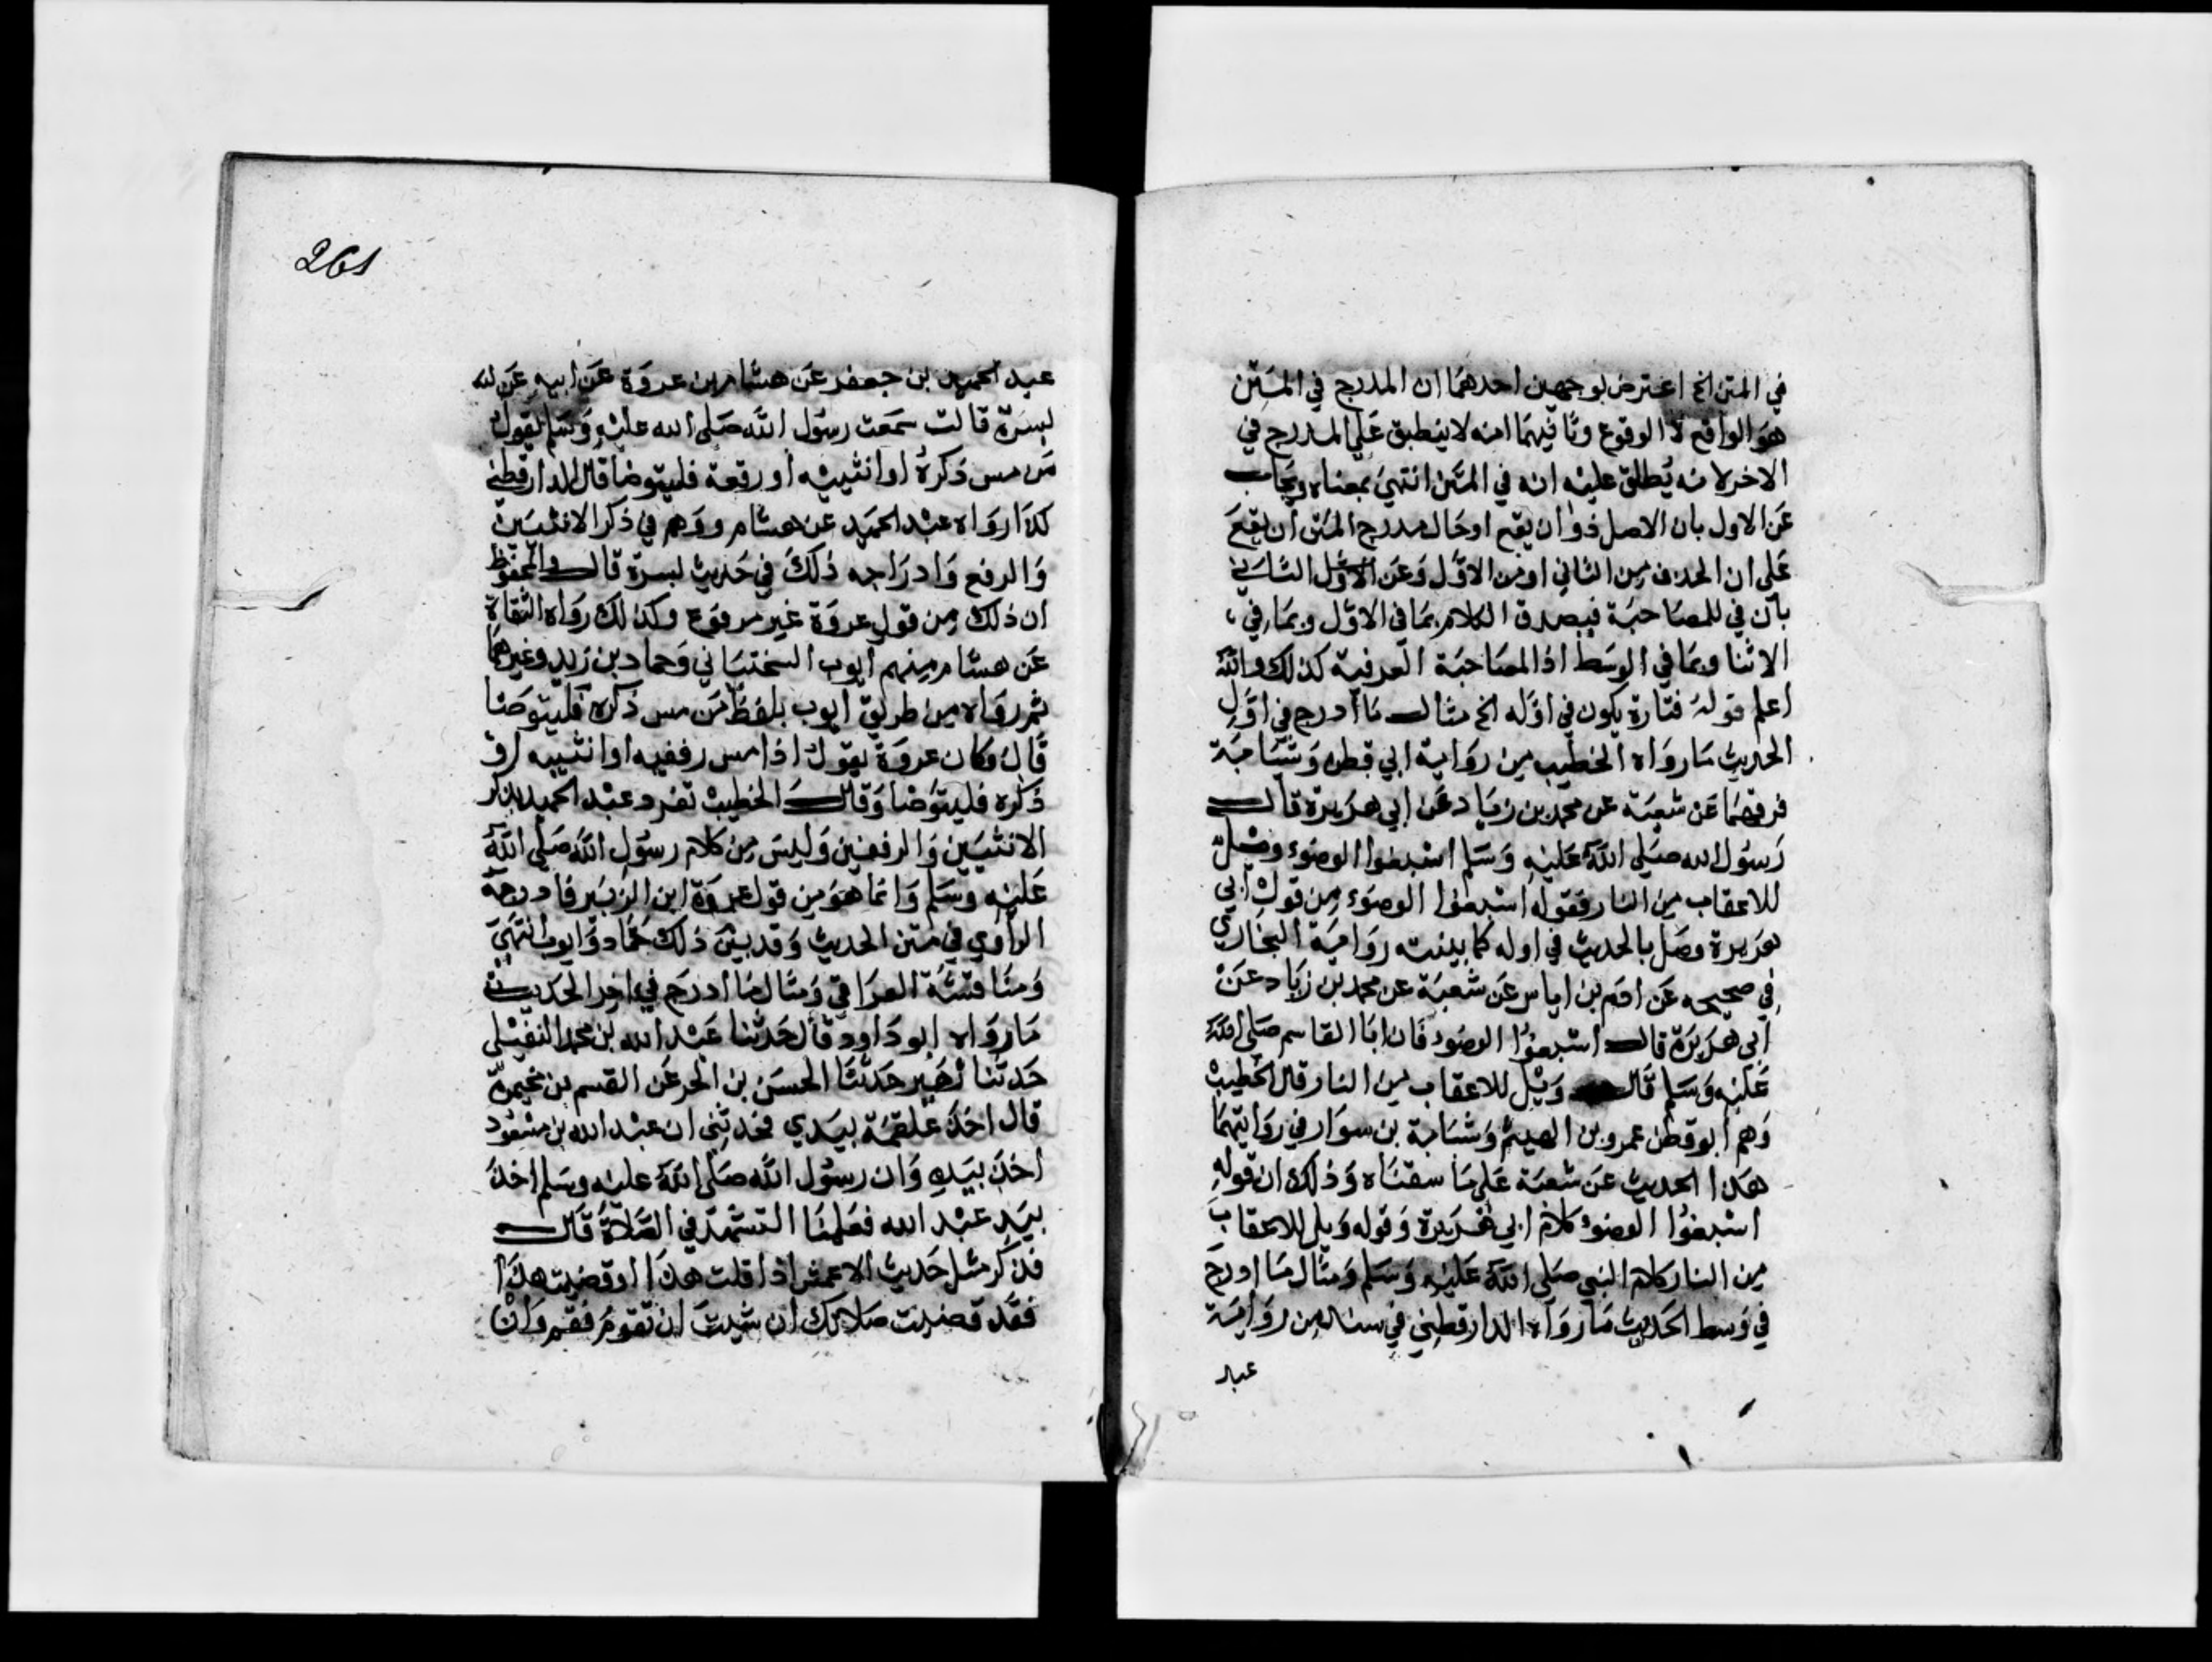 في المتن الخ اعترض بوجهين احدهما ان المدرج في المتن
هو الواقع لا الوقوع وثانيهما انه لا ينطبق على المدرج في
الاخر لانه يطلق عليه انه في المتن انتهى بمعناه ويجاب
عن الاول بان الاصل ذو ان يقع او حال مدرج المتن ان يقع
على ان الحذف من الثاني او من الاول وعن الثاني
بان في للمصاحبة فيصدق الكلام بما في الاول وبما في
الاثنا وبما في الوسط اذ المصاحبة العرفية كذلك والله
اعلم قوله فتارة يكون في اوله الخ مثال ما ادرج في اول
الحديث ما رواه الخطيب من رواية ابي قطن وشبابة
فرقهما عن شعبة عن محمد بن زياد عن ابي هريرة قال
رسول الله صلى الله عليه وسلم اسبغوا الوضوء ويل
للاعقاب من النار فقوله اسبغوا الوضوء من قول ابي
هريرة وصل بالحديث في اوله كما بينته رواية البخاري
في صحيحه عن ادم بن اياس عن شعبة عن محمد بن زياد عن
ابي هريرة قال اسبغوا الوضوء فان ابا القاسم صلى الله
عليه وسلم قال ويل للاعقاب من النار قال الخطيب
وهم ابو قطن عمرو بن الهيثم وشبابة بن سوار في روايتهما
هذا الحديث عن شعبة على ما سقناه وذلك ان قوله
اسبغوا الوضوء كلام ابي هريرة وقوله ويل للاعقاب
من النار كلام النبي صلى الله عليه وسلم ومثال ما ادرج
في وسط الحديث ما رواه الدارقطني في سننه من رواية
عبد
261
عبد الحميد بن جعفر عن هشام بن عروة عن ابيه عن
بسرة قالت سمعت رسول الله صلى الله عليه وسلم يقول
من مس ذكره او انثييه او رفعه فليتوضا قال الدارقطني
كذا رواه عبد الحميد عن هشام ووهم في ذكر الانثيين
والرفع وادراجه ذلك في حديث بسرة قال والمحفوظ
ان ذلك من قول عروة غير مرفوع وكذلك رواه الثقاة
عن هشام منهم ايوب السختياني وحماد بن زيد وغيرهما
ثم رواه من طريق ايوب بلفظ من مس ذكره فليتوضا
قال وكان عروة يقول اذا مس رفغيه او انثييه او
ذكره فليتوضا وقال الخطيب تفرد عبد الحميد بذكر
الانثيين والرفغين وليس من كلام رسول الله صلى الله
عليه وسلم وانما هو من قول عروة ابن الزبير فادرجه
الراوي في متن الحديث وقد بين ذلك حماد وايوب انتهى
ومناقشة العراقي ومثال ما ادرج في اخر الحديث
ما رواه ابو داود قال حدثنا عبد الله بن محمد النفيلي
حدثنا زهير حدثنا الحسن بن الحر عن القسم بن مخيمرة
قال اخذ علقمة بيدي فحدثني ان عبد الله بن مسعود
اخذ بيده وان رسول الله صلى الله عليه وسلم اخذ
بيد عبد الله فعلمنا التشهد في الصلاة قال
فذكر مثل حديث الاعمش اذا قلت هذا او قضيت هذا
فقد قضيت صلاتك ان شيت ان تقوم فقم وان